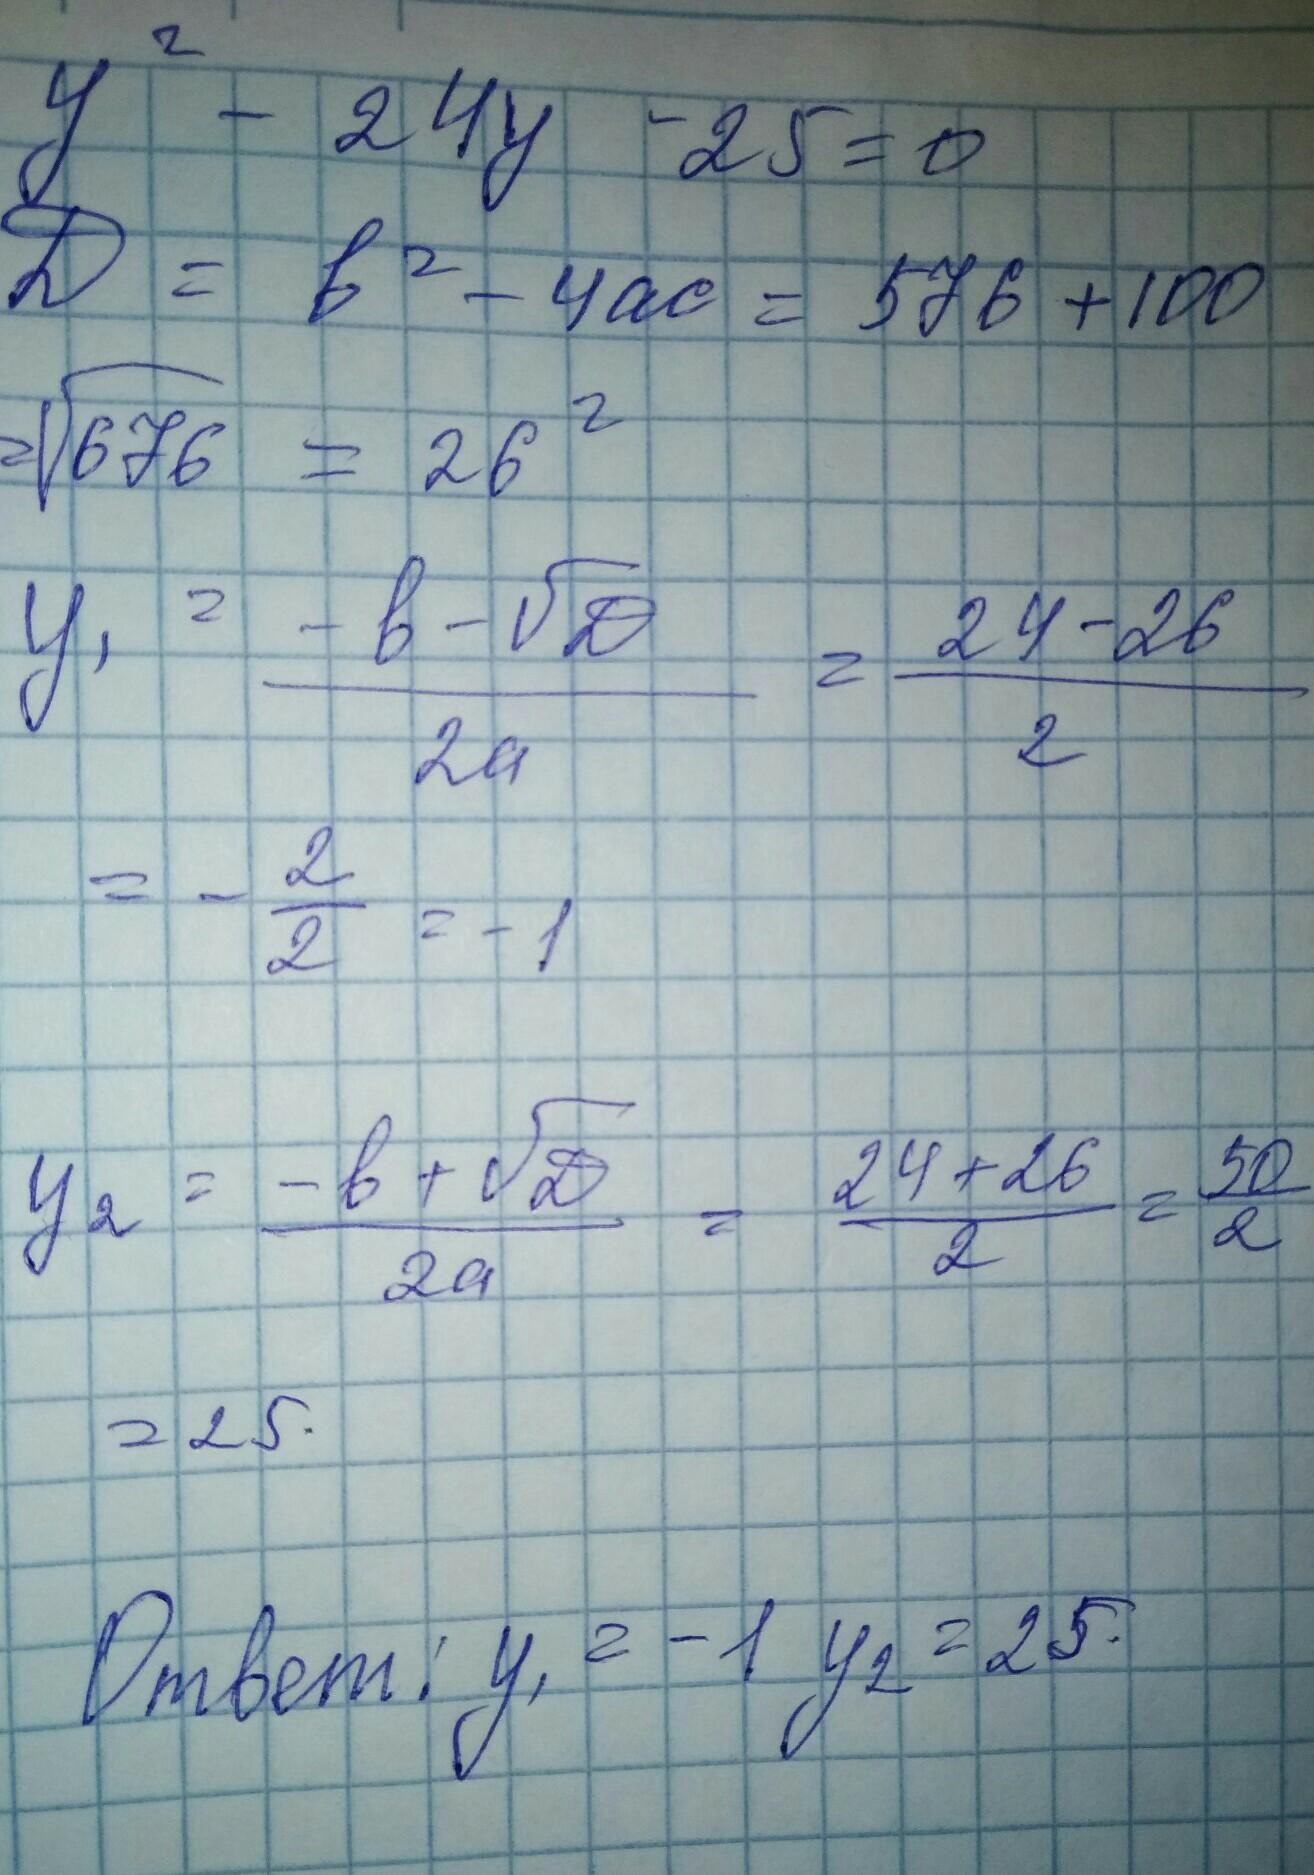 y² - 24y - 25 = 0
D = b² - 4ac = 576 + 100
= √676 = 26²
y₁ = (-b - √D)/2a = (24 - 26)/2
= - 2/2 = - 1
y₂ = (-b + √D)/2a = (24 + 26)/2 = 50/2
= 25.
Ответ: y₁ = - 1 y₂ = 25.